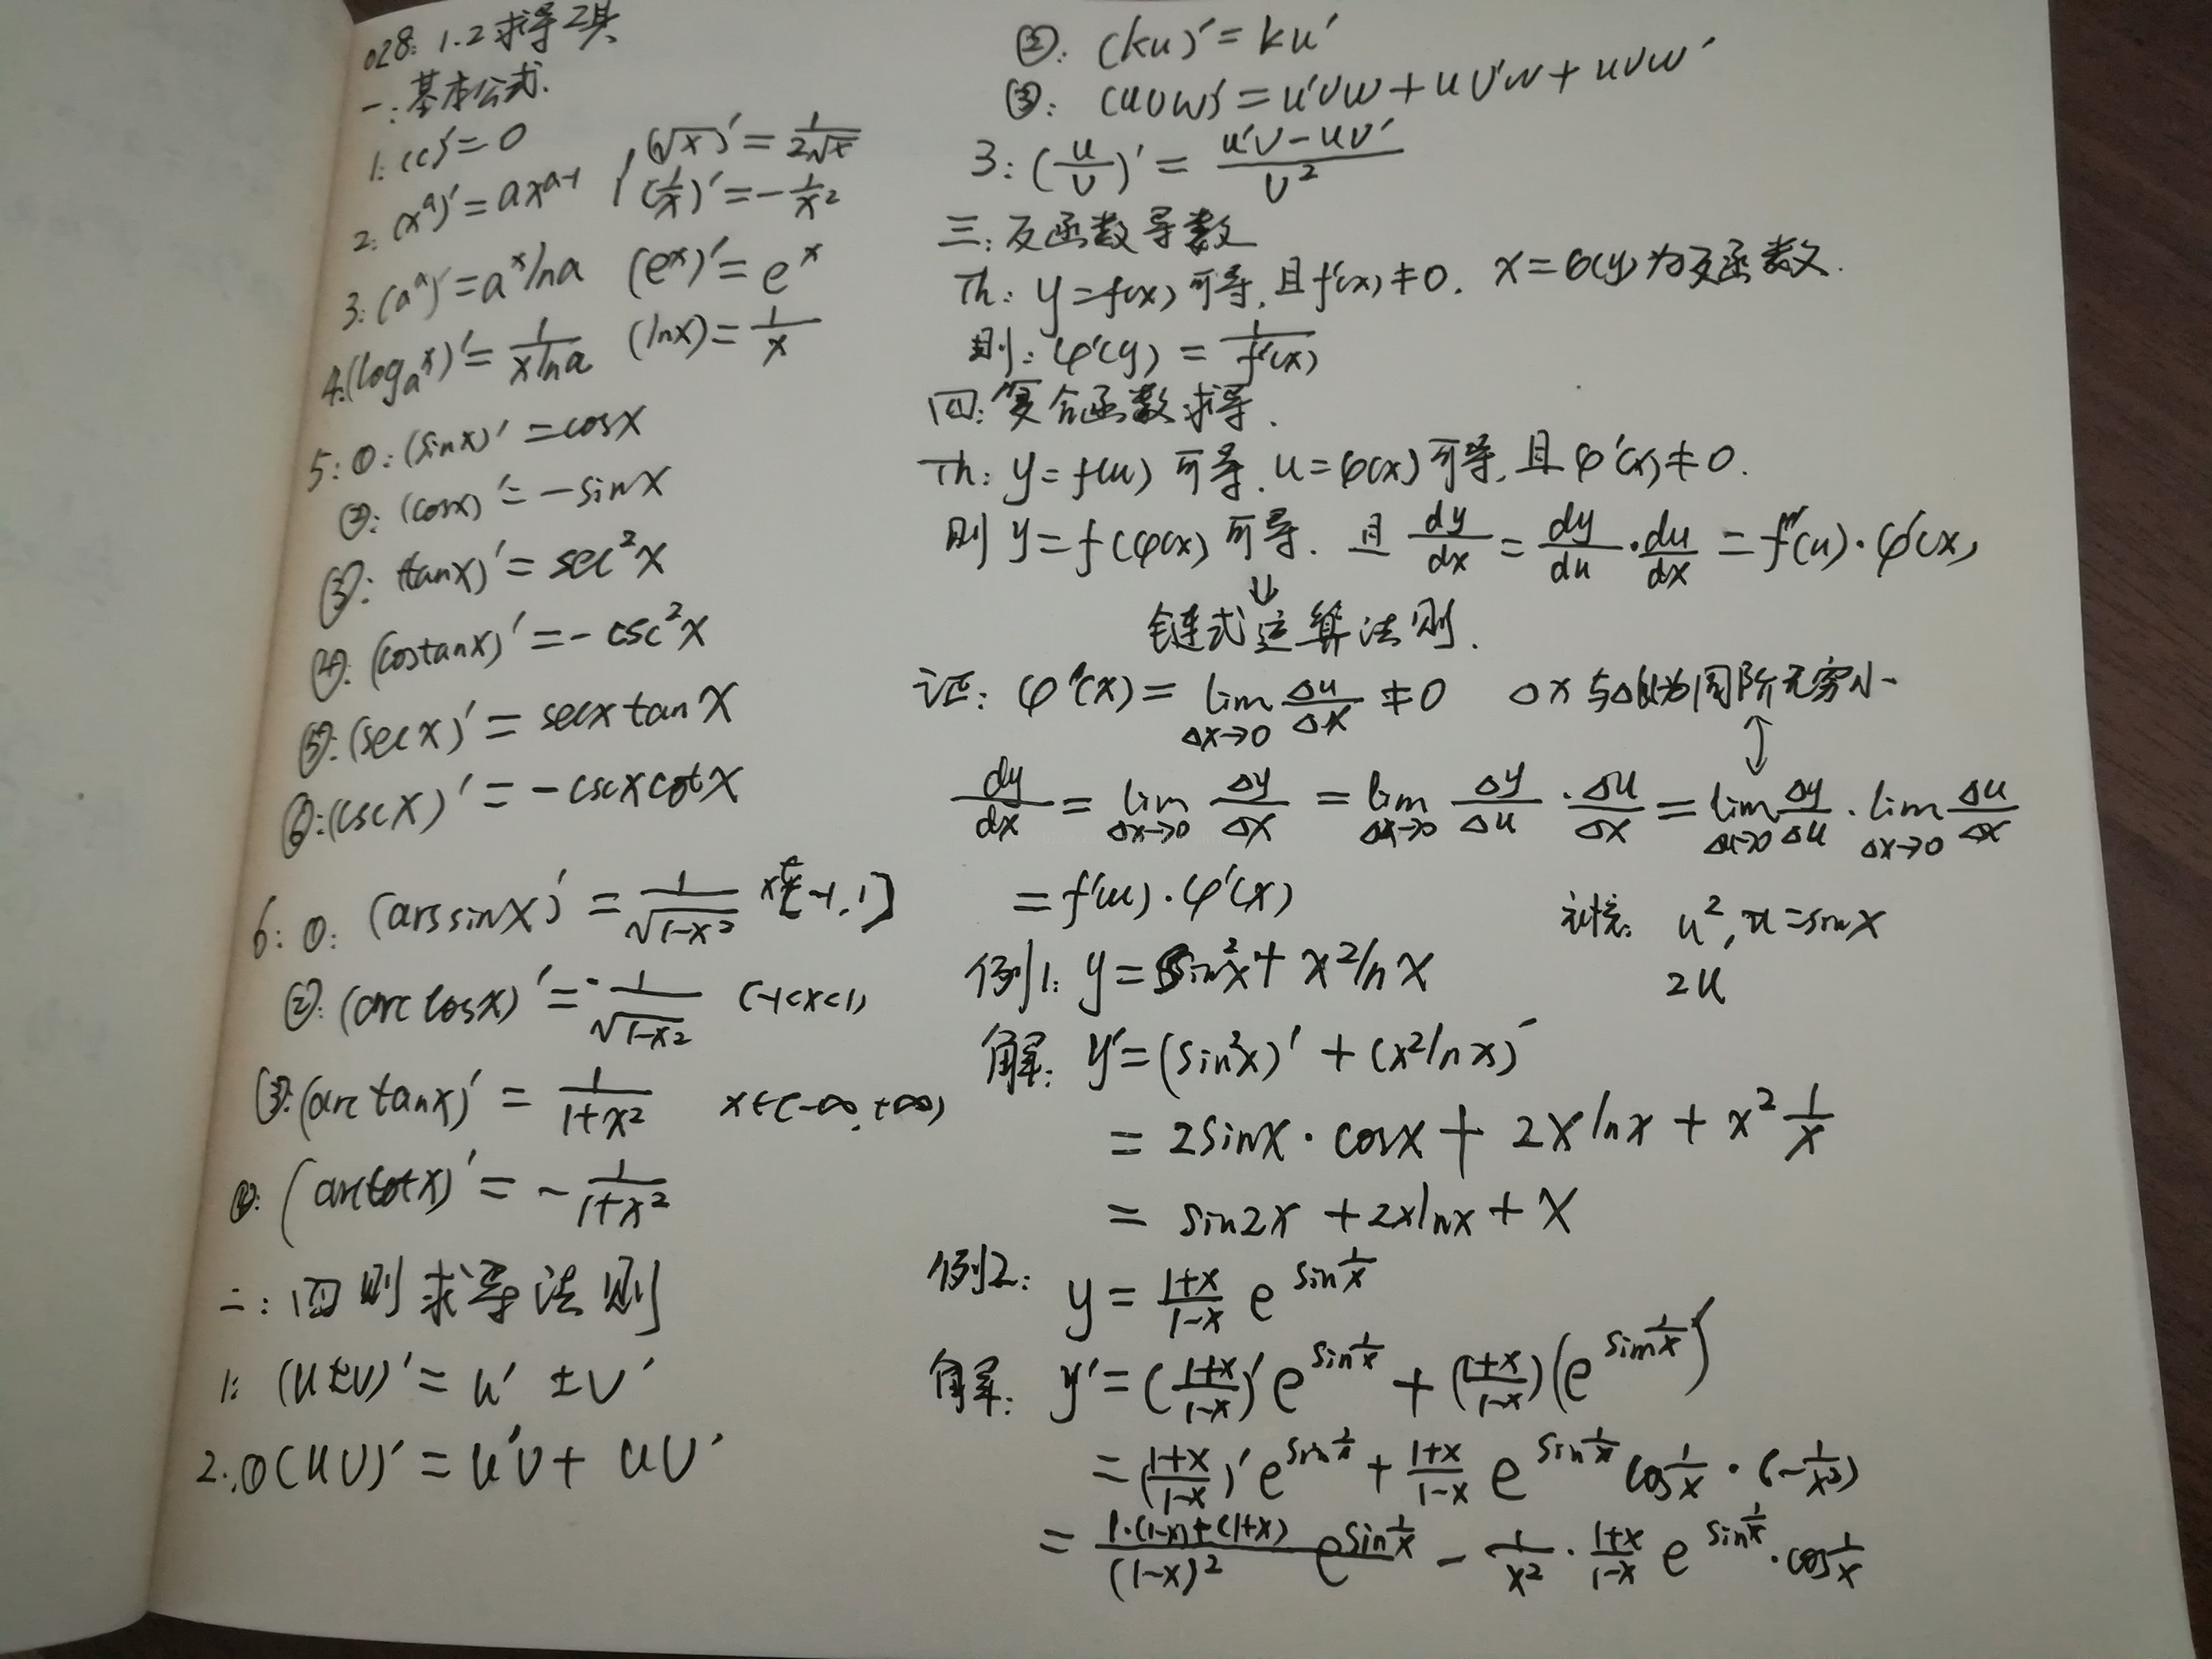 028: 1.2求导工具
一:基本公式.
1: (c)'=0
2: (x^a)'=ax^(a-1) , (√x)'=1/(2√x)
(1/x)'=-1/x²
3: (a^x)'=a^x lna (e^x)'=e^x
4: (log_a x)'=1/(xlna) (lnx)=1/x
5: ①: (sinx)'=cosx
②: (cosx)'=-sinx
③: (tanx)'=sec²x
④: (costanx)'=-csc²x
⑤: (secx)'=secxtanx
⑥: (cscx)'=-cscxcotx
6: ①: (arssinx)'=1/√(1-x²) x∈[-1,1]
②: (arccosx)'=-1/√(1-x²) (-1<x<1)
③: (arctanx)'=1/(1+x²) x∈(-∞,+∞)
④: (arccotx)'=-1/(1+x²)
二:四则求导法则
1: (u±v)'=u'±v'
2: ①(uv)'=u'v+uv'
②: (ku)'=ku'
③: (uvw)'=u'vw+uv'w+uvw'
3: (u/v)'=(u'v-uv')/v²
三:反函数导数
Th: y=f(x)可导,且f'(x)≠0. x=φ(y)为反函数.
则: φ'(y)=1/f'(x)
四:复合函数求导.
Th: y=f(u)可导.u=φ(x)可导,且φ'(x)≠0.
则y=f(φ(x)可导. 且dy/dx=dy/du·du/dx=f'(u)·φ'(x)
⇓
链式运算法则.
证: φ'(x)=lim Δx→0 Δu/Δx≠0 Δx与Δu为同阶无穷小
↕
dy/dx=lim Δx→0 Δy/Δx=lim Δx→0 Δy/Δu·Δu/Δx=lim Δu→0 Δy/Δu·lim Δx→0 Δu/Δx
=f'(u)·φ'(x)
u²,u=sinx
2u
例1: y=sin²x+x²lnx
解: y'=(sin²x)'+(x²lnx)'
=2sinx·cosx+2xlnx+x² 1/x
=sin2x+2xlnx+x
例2: y=(1+x)/(1-x) e^(sin 1/x)
解: y'=((1+x)/(1-x))'e^(sin 1/x)+((1+x)/(1-x))(e^(sin 1/x))'
=((1+x)/(1-x))'e^(sin 1/x)+(1+x)/(1-x) e^(sin 1/x)cos 1/x·(-1/x²)
=(1·(1-x)+(1+x))/(1-x)² e^(sin 1/x)-1/x²·(1+x)/(1-x) e^(sin 1/x)·cos 1/x